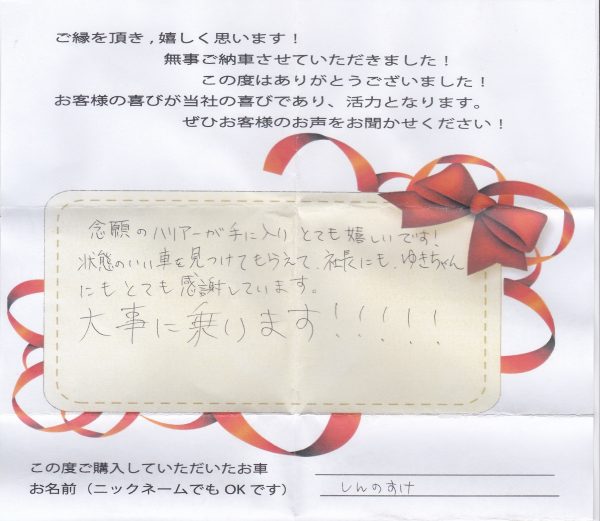 ご縁を頂き,嬉しく思います！
無事ご納車させていただきました！
この度はありがとうございました！
お客様の喜びが当社の喜びであり、活力となります。
ぜひお客様のお声をお聞かせください！
念願のハリアーが手に入りとても嬉しいです!
状態のいい車を見つけてもらえて、社長にも、ゆきちゃん
にもとても感謝しています。
大事に乗ります!!!!!
この度ご購入していただいたお車
お名前（ニックネームでもOKです）
しんのすけ